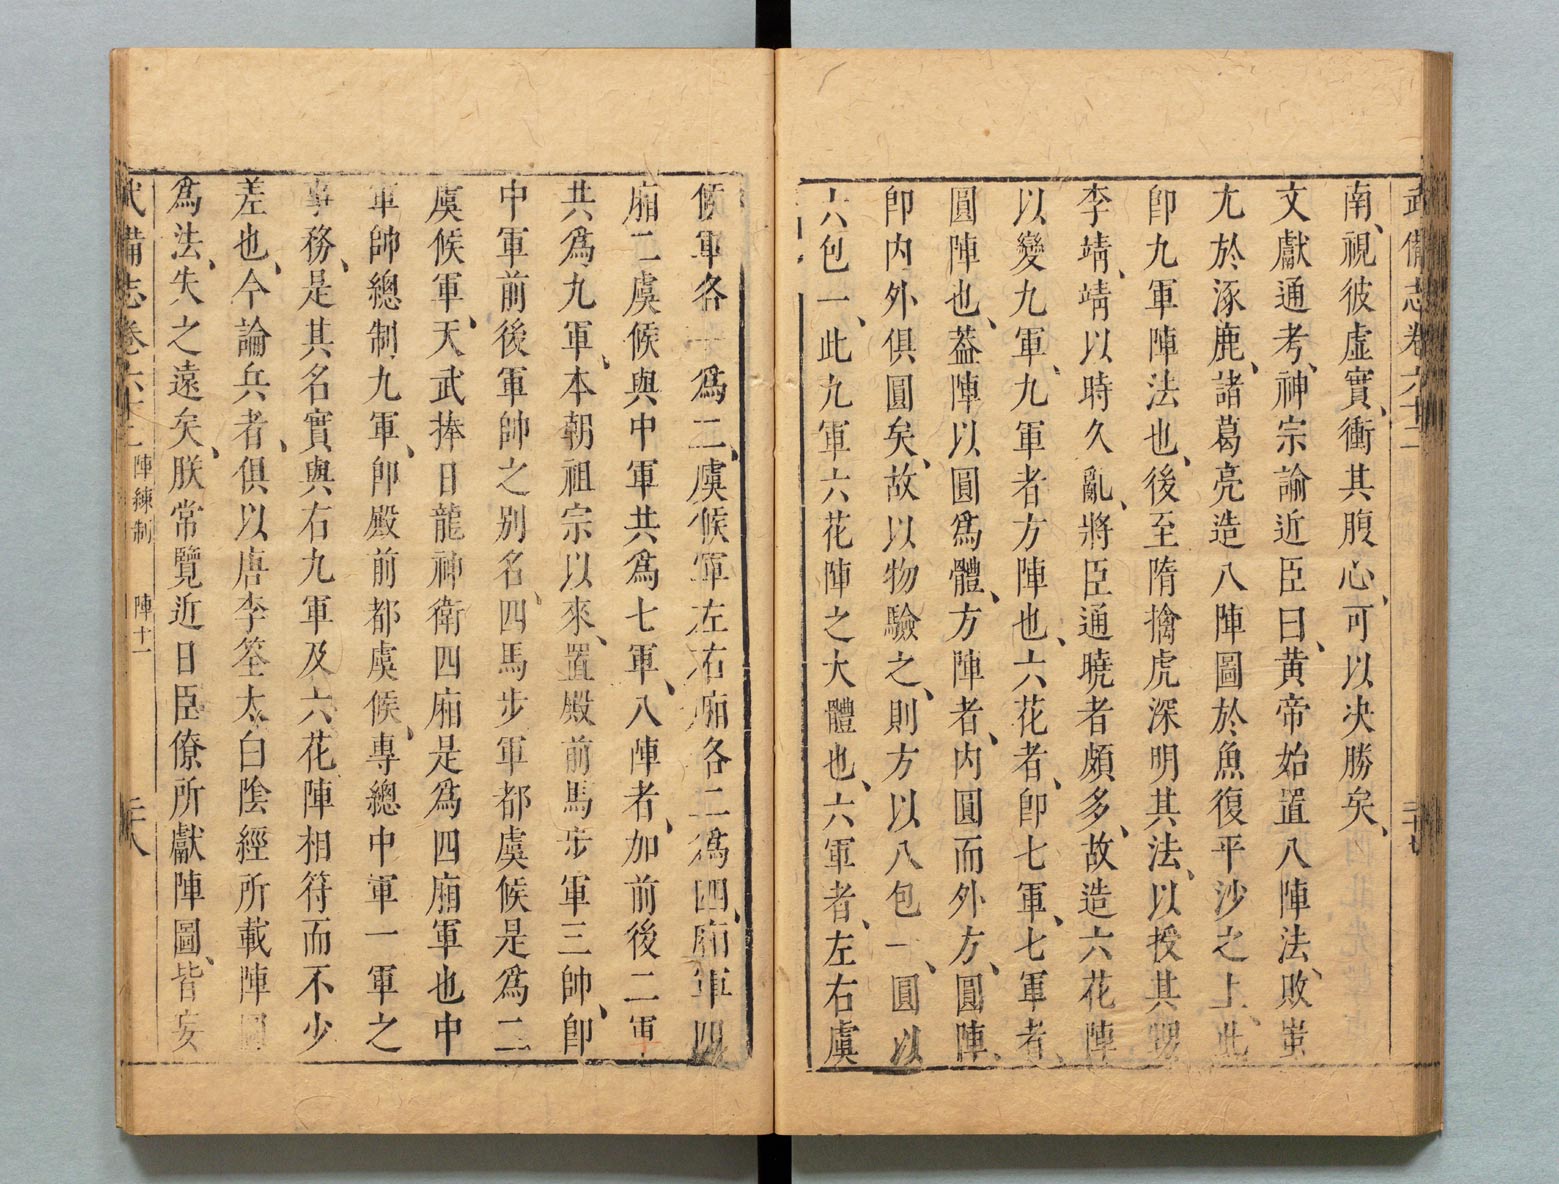 武備志卷六十二
二十七
南、視彼虛實、衝其腹心、可以决勝矣、
文獻通考、神宗諭近臣曰、黄帝始置八陣法、敗蚩
尤於涿鹿、諸葛亮造八陣圖於魚復平沙之上、此
卽九軍陣法也、後至隋擒虎深明其法、以授其甥
李靖、靖以時久亂、將臣通曉者頗多、故造六花陣
以變九軍、九軍者方陣也、六花者、卽七軍、七軍者、
圓陣也、葢陣以圓爲體、方陣者、内圓而外方、圓陣、
卽内外俱圓矣、故以物驗之、則方以八包一、圓以
六包一、此九軍六花陣之大體也、六軍者、左右虞
候軍各一爲二、虞候軍左右廂各二爲四、廂軍四
廂二虞候與中軍共爲七軍、八陣者、加前後二軍
共爲九軍、本朝祖宗以來、置殿前馬步軍三帥、卽
中軍前後軍帥之别名、四馬步軍都虞候是爲二
虞候軍、天武捧日龍神衛四廂是爲四廂軍也中
軍帥總制九軍、卽殿前都虞候、專總中軍一軍之
事務、是其名實與右九軍及六花陣相符而不少
差也、今論兵者、俱以唐李筌太白陰經所載陣圖
爲法、失之遠矣、朕常覽近日臣僚所獻陣圖、皆妄
武備志卷六十二 陣練制 陣十一
二十八